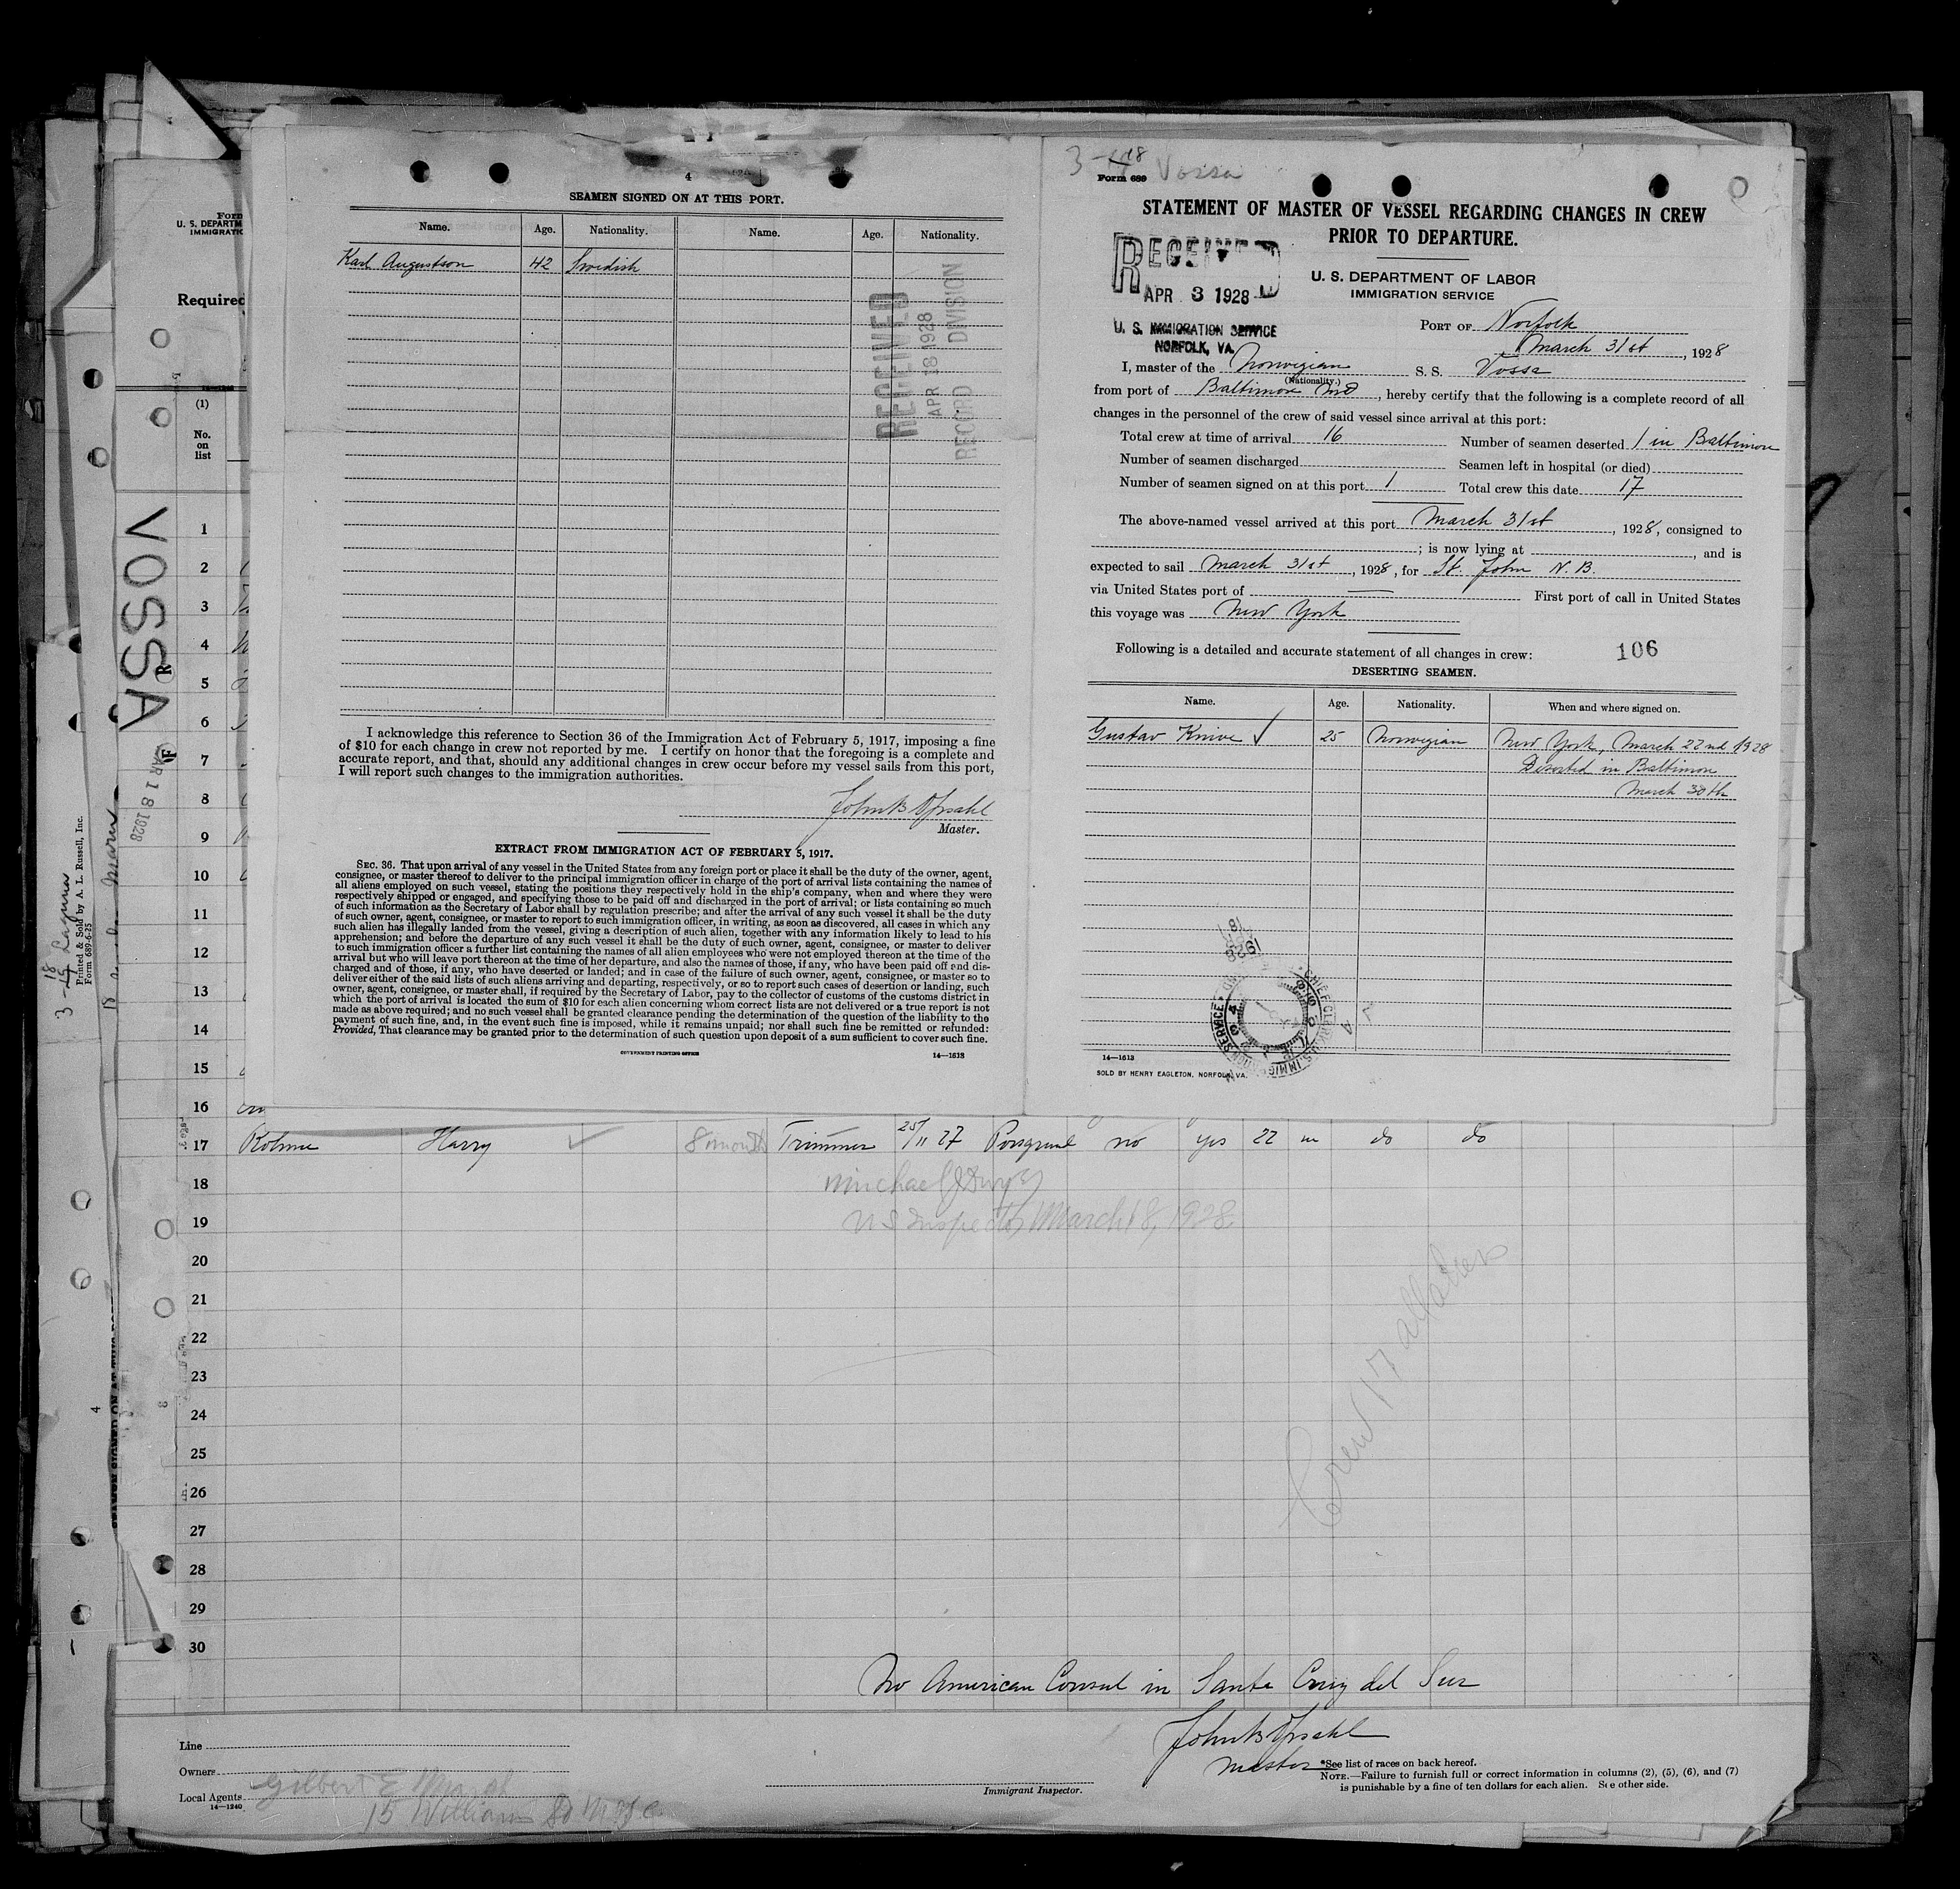 4
SEAMEN SIGNED ON AT THIS PORT.
Name. Age. Nationality. Name. Age. Nationality.
Karl Augustson 42 Swedish
RECEIVED
APR 18 1928
RECORD DIVISION
I acknowledge this reference to Section 36 of the Immigration Act of February 5, 1917, imposing a fine
of $10 for each change in crew not reported by me. I certify on honor that the foregoing is a complete and
accurate report, and that, should any additional changes in crew occur before my vessel sails from this port,
I will report such changes to the immigration authorities.
John B Opsahl
Master.
EXTRACT FROM IMMIGRATION ACT OF FEBRUARY 5, 1917.
SEC. 36. That upon arrival of any vessel in the United States from any foreign port or place it shall be the duty of the owner, agent,
consignee, or master thereof to deliver to the principal immigration officer in charge of the port of arrival lists containing the names of
all aliens employed on such vessel, stating the positions they respectively hold in the ship's company, when and where they were
respectively shipped or engaged, and specifying those to be paid off and discharged in the port of arrival; or lists containing so much
of such information as the Secretary of Labor shall by regulation prescribe; and after the arrival of any such vessel it shall be the duty
of such owner, agent, consignee, or master to report to such immigration officer, in writing, as soon as discovered, all cases in which any
such alien has illegally landed from the vessel, giving a description of such alien, together with any information likely to lead to his
apprehension; and before the departure of any such vessel it shall be the duty of such owner, agent, consignee, or master to deliver
to such immigration officer a further list containing the names of all alien employees who were not employed thereon at the time of the
arrival but who will leave port thereon at the time of her departure, and also the names of those, if any, who have been paid off and dis-
charged and of those, if any, who have deserted or landed; and in case of the failure of such owner, agent, consignee, or master so to
deliver either of the said lists of such aliens arriving and departing, respectively, or so to report such cases of desertion or landing, such
owner, agent, consignee, or master shall, if required by the Secretary of Labor, pay to the collector of customs of the customs district in
which the port of arrival is located the sum of $10 for each alien concerning whom correct lists are not delivered or a true report is not
made as above required; and no such vessel shall be granted clearance pending the determination of the question of the liability to the
payment of such fine, and, in the event such fine is imposed, while it remains unpaid; nor shall such fine be remitted or refunded:
Provided, That clearance may be granted prior to the determination of such question upon deposit of a sum sufficient to cover such fine.
GOVERNMENT PRINTING OFFICE 14—1613
3 - 18 Vossa
Form 689
STATEMENT OF MASTER OF VESSEL REGARDING CHANGES IN CREW
PRIOR TO DEPARTURE.
U. S. DEPARTMENT OF LABOR
IMMIGRATION SERVICE
RECEIVED
APR 3 1928
U. S. IMMIGRATION SERVICE
NORFOLK, VA.
PORT OF Norfolk
March 31st, 1928
I, master of the Norwegian S. S. Vossa
(Nationality.)
from port of Baltimore Md, hereby certify that the following is a complete record of all
changes in the personnel of the crew of said vessel since arrival at this port:
Total crew at time of arrival 16 Number of seamen deserted 1 in Baltimore
Number of seamen discharged Seamen left in hospital (or died)
Number of seamen signed on at this port 1 Total crew this date 17
The above-named vessel arrived at this port March 31st, 1928, consigned to
; is now lying at , and is
expected to sail March 31st, 1928, for St. John N. B.
via United States port of — First port of call in United States
this voyage was New York
Following is a detailed and accurate statement of all changes in crew: 106
DESERTING SEAMEN.
Name. Age. Nationality. When and where signed on.
Gustav Knive ✓ 25 Norwegian New York, March 22nd 1928
Deserted in Baltimore
March 30th
14—1613
SOLD BY HENRY EAGLETON, NORFOLK, VA.
Form
U. S. DEPARTM
IMMIGRATIO
Required
(1)
No.
on
list
VOSSA
MAR 18 1928
1
2
3
4
5
6
7
8
9
10
11
12
13
14
15
16
17 Kolme Harry ✓ 8 month Trimmer 25/11 27 Porsgrund no yes 22 m do do
18
19
U S Inspector March 18, 1928
20
21
22
23
24
25
26
27
28
29
30
Crew 17 all
No American Consul in Santa Cruz del Sur
John B Opsahl
Master
Line
Owners
Local Agents
14—1240
Gilbert E
15 William St
Immigrant Inspector.
*See list of races on back hereof.
NOTE.—Failure to furnish full or correct information in columns (2), (5), (6), and (7)
is punishable by a fine of ten dollars for each alien. See other side.
Printed & Sold by A. L. Russell, Inc.
Form 689-6-25
4